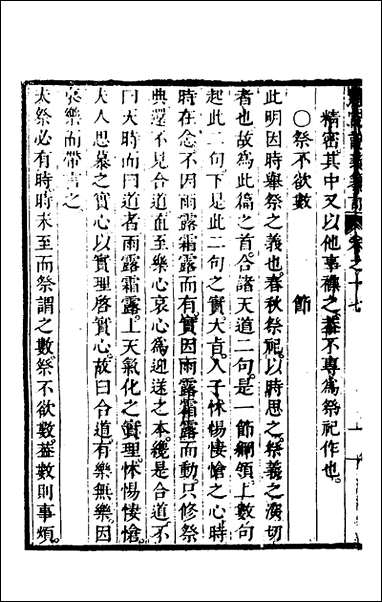 精密其中又以他事襍之葢不專為祭祀作也
○祭不欲數　節
此明因時舉祭之義也春秋祭祀以時思之祭義之濶切
者也故為此篇之首合諸天道二句是一節綱領上數句
起此二句下是此二句之實大㫖人子怵惕悽愴之心時
時在念不因雨露霜露而有實因雨露霜露而動只修祭
典還不見合道直至樂心哀心為迎送之本纔是合道不
曰天時而曰道者雨露霜露上天氣化之實理怵惕悽愴
人思慕之實心以實理啓實心故曰合道有樂無樂因
哀樂而帶言之
祭必有時時未至而祭謂之數祭不欲數葢數則事煩
之十七